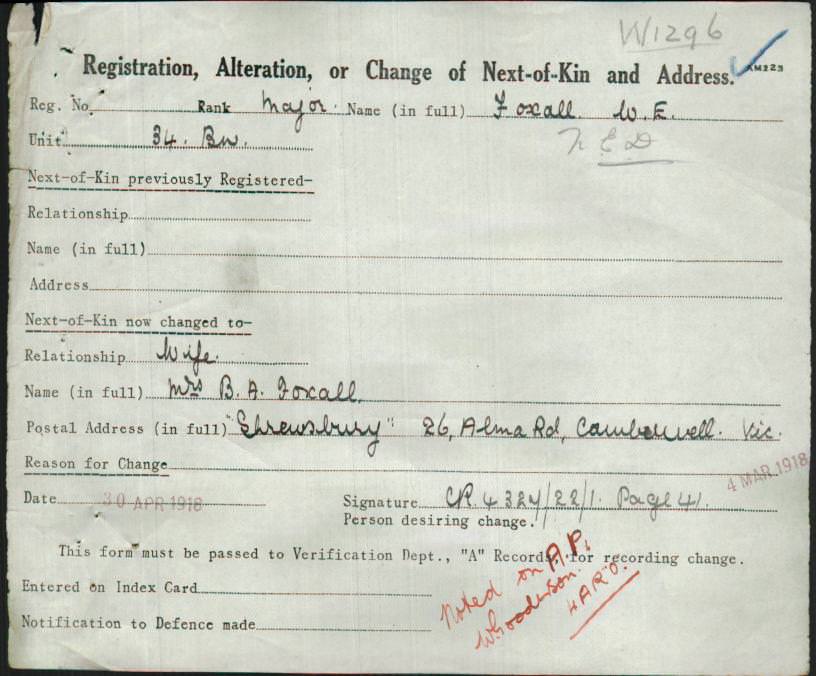 W1296
Registration, Alteration, or Change of Next-of-Kin and Address. AM223
Reg. No. Rank Major. Name (in full) Foxall. W. E.
Unit 34. Bn.
Next-of-Kin previously Registered-
Relationship
Name (in full)
Address
Next-of-Kin now changed to-
Relationship Wife.
Name (in full) Mrs B. A. Foxall.
Postal Address (in full) "Shrewsbury" 26, Alma Rd, Camberwell. Vic.
Reason for Change
4 MAR 1918
Date 30 APR 1918 Signature CR. 4324/22/1. Page 41.
Person desiring change.
This form must be passed to Verification Dept., "A" Records, for recording change.
Noted on A.P.
Entered on Index Card
Notification to Defence made